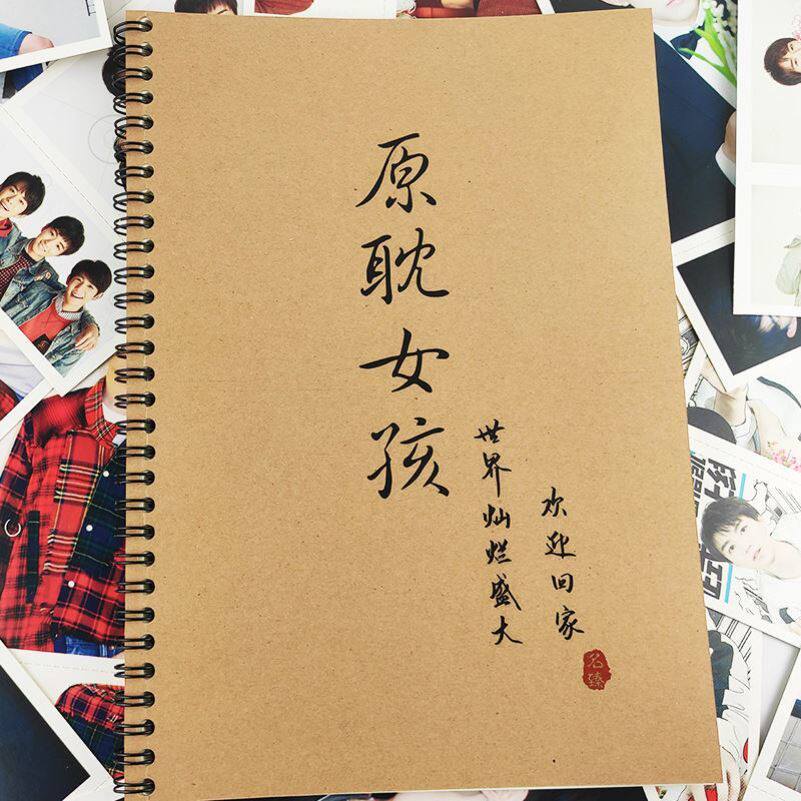 原耽女孩
世界灿烂盛大
欢迎回家
名臻